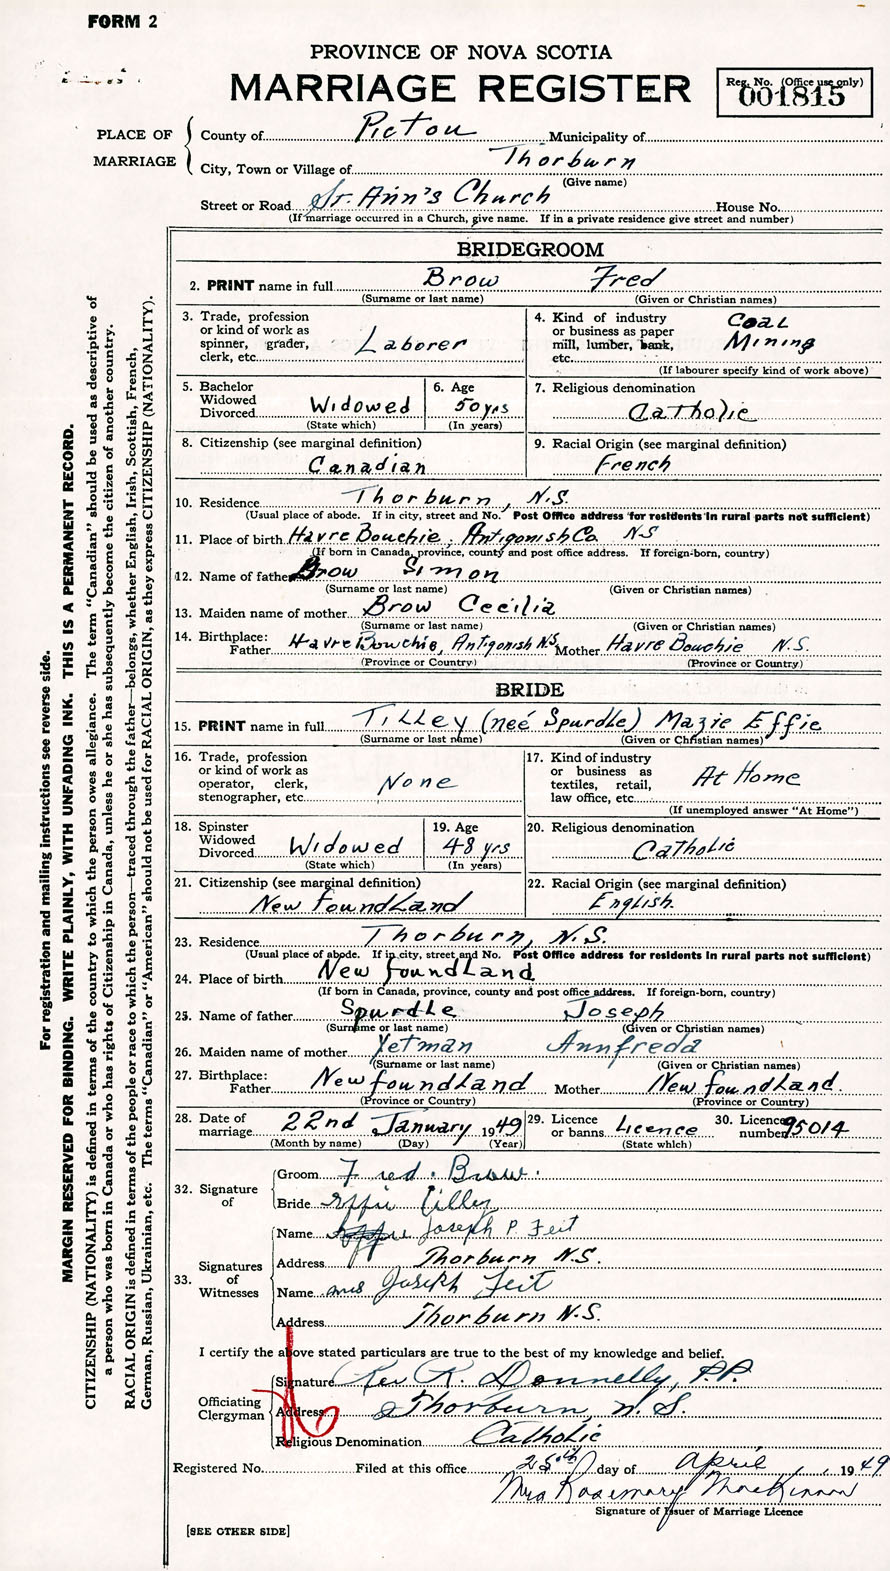 FORM 2
PROVINCE OF NOVA SCOTIA
MARRIAGE REGISTER
Reg. No. (Office use only)
001815
PLACE OF MARRIAGE
County of Pictou Municipality of
City, Town or Village of Thorburn
(Give name)
Street or Road St. Ann's Church House No.
(If marriage occurred in a Church, give name. If in a private residence give street and number)
BRIDEGROOM
2. PRINT name in full Brow Fred
(Surname or last name) (Given or Christian names)
3. Trade, profession or kind of work as spinner, grader, clerk, etc. Laborer
4. Kind of industry or business as paper mill, lumber, bank, etc. Coal Mining
(If labourer specify kind of work above)
5. Bachelor Widowed Divorced Widowed
(State which)
6. Age 50 yrs
(In years)
7. Religious denomination
Catholic
8. Citizenship (see marginal definition)
Canadian
9. Racial Origin (see marginal definition)
French
10. Residence Thorburn, N.S.
(Usual place of abode. If in city, street and No. Post Office address for residents in rural parts not sufficient)
11. Place of birth Havre Bouchie, Antigonish Co. N S
(If born in Canada, province, county and post office address. If foreign-born, country)
12. Name of father Brow Simon
(Surname or last name) (Given or Christian names)
13. Maiden name of mother Brow Cecilia
(Surname or last name) (Given or Christian names)
14. Birthplace: Father Havre Bouchie, Antigonish N.S. Mother Havre Bouchie N.S.
(Province or Country) (Province or Country)
BRIDE
15. PRINT name in full Tilley (neé Spurdle) Mazie Effie
(Surname or last name) (Given or Christian names)
16. Trade, profession or kind of work as operator, clerk, stenographer, etc. None
17. Kind of industry or business as textiles, retail, law office, etc. At Home
(If unemployed answer "At Home")
18. Spinster Widowed Divorced Widowed
(State which)
19. Age 48 yrs
(In years)
20. Religious denomination
Catholic
21. Citizenship (see marginal definition)
New foundLand
22. Racial Origin (see marginal definition)
English.
23. Residence Thorburn, N.S.
(Usual place of abode. If in city, street and No. Post Office address for residents in rural parts not sufficient)
24. Place of birth New foundLand
(If born in Canada, province, county and post office address. If foreign-born, country)
25. Name of father Spurdle Joseph
(Surname or last name) (Given or Christian names)
26. Maiden name of mother Yetman Annfreda
(Surname or last name) (Given or Christian names)
27. Birthplace: Father New foundLand Mother New foundLand.
(Province or Country) (Province or Country)
28. Date of marriage 22nd January 1949
(Month by name) (Day) (Year)
29. Licence or banns Licence
(State which)
30. Licence number 95014
32. Signature of
Groom Fred. Brow.
Bride Effie Tilley
33. Signatures of Witnesses
Name Joseph P. Feit
Address Thorburn N.S.
Name Mrs Joseph Feit
Address Thorburn N.S.
I certify the above stated particulars are true to the best of my knowledge and belief.
Officiating Clergyman
Signature Rev R. Donnelly, P.P.
Address Thorburn, N.S.
Religious Denomination Catholic
Registered No. Filed at this office 25th day of April 1949
Mrs Rosemary MacKinnon
Signature of Issuer of Marriage Licence
[SEE OTHER SIDE]
For registration and mailing instructions see reverse side.
MARGIN RESERVED FOR BINDING. WRITE PLAINLY, WITH UNFADING INK. THIS IS A PERMANENT RECORD.
CITIZENSHIP (NATIONALITY) is defined in terms of the country to which the person owes allegiance. The term "Canadian" should be used as descriptive of
a person who was born in Canada or who has rights of Citizenship in Canada, unless he or she has subsequently become the citizen of another country.
RACIAL ORIGIN is defined in terms of the people or race to which the person—traced through the father—belongs, whether English, Irish, Scottish, French,
German, Russian, Ukrainian, etc. The terms "Canadian" or "American" should not be used for RACIAL ORIGIN, as they express CITIZENSHIP (NATIONALITY).